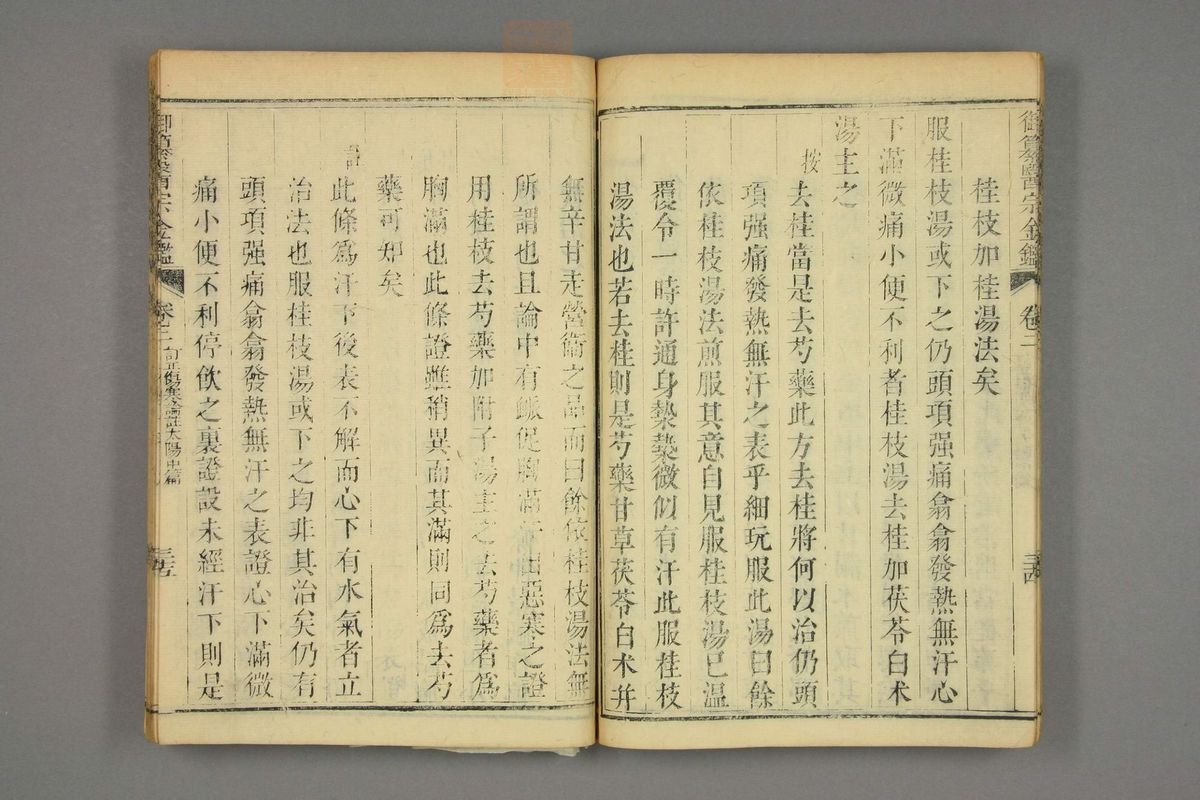 御纂醫宗金鑑 卷二 三古
桂枝加桂湯法矣
服桂枝湯或下之仍頭項强痛翕翕發熱無汗心
下滿微痛小便不利者桂枝湯去桂加茯苓白术
湯主之
按去桂當是去芍藥此方去桂將何以治仍頭
項强痛發熱無汗之表乎細玩服此湯曰餘
依桂枝湯法煎服其意自見服桂枝湯已温
覆令一時許通身漐漐微似有汗此服桂枝
湯法也若去桂則是芍藥甘草茯苓白术并
無辛甘走營衞之品而曰餘依桂枝湯法無
所謂也且論中有脈促胸滿 惡寒之證
用桂枝去芍藥加附子湯主之去芍藥者爲
胸滿也此條證雖稍異而其滿則同爲去芍
藥可知矣
註此條爲汗下後表不解而心下有水氣者立
治法也服桂枝湯或下之均非其治矣仍有
頭項强痛翕翕發熱無汗之表證心下滿微
痛小便不利停飮之裏證設未經汗下則是
御纂醫宗金鑑 卷之二 訂正傷寒論註太陽中篇